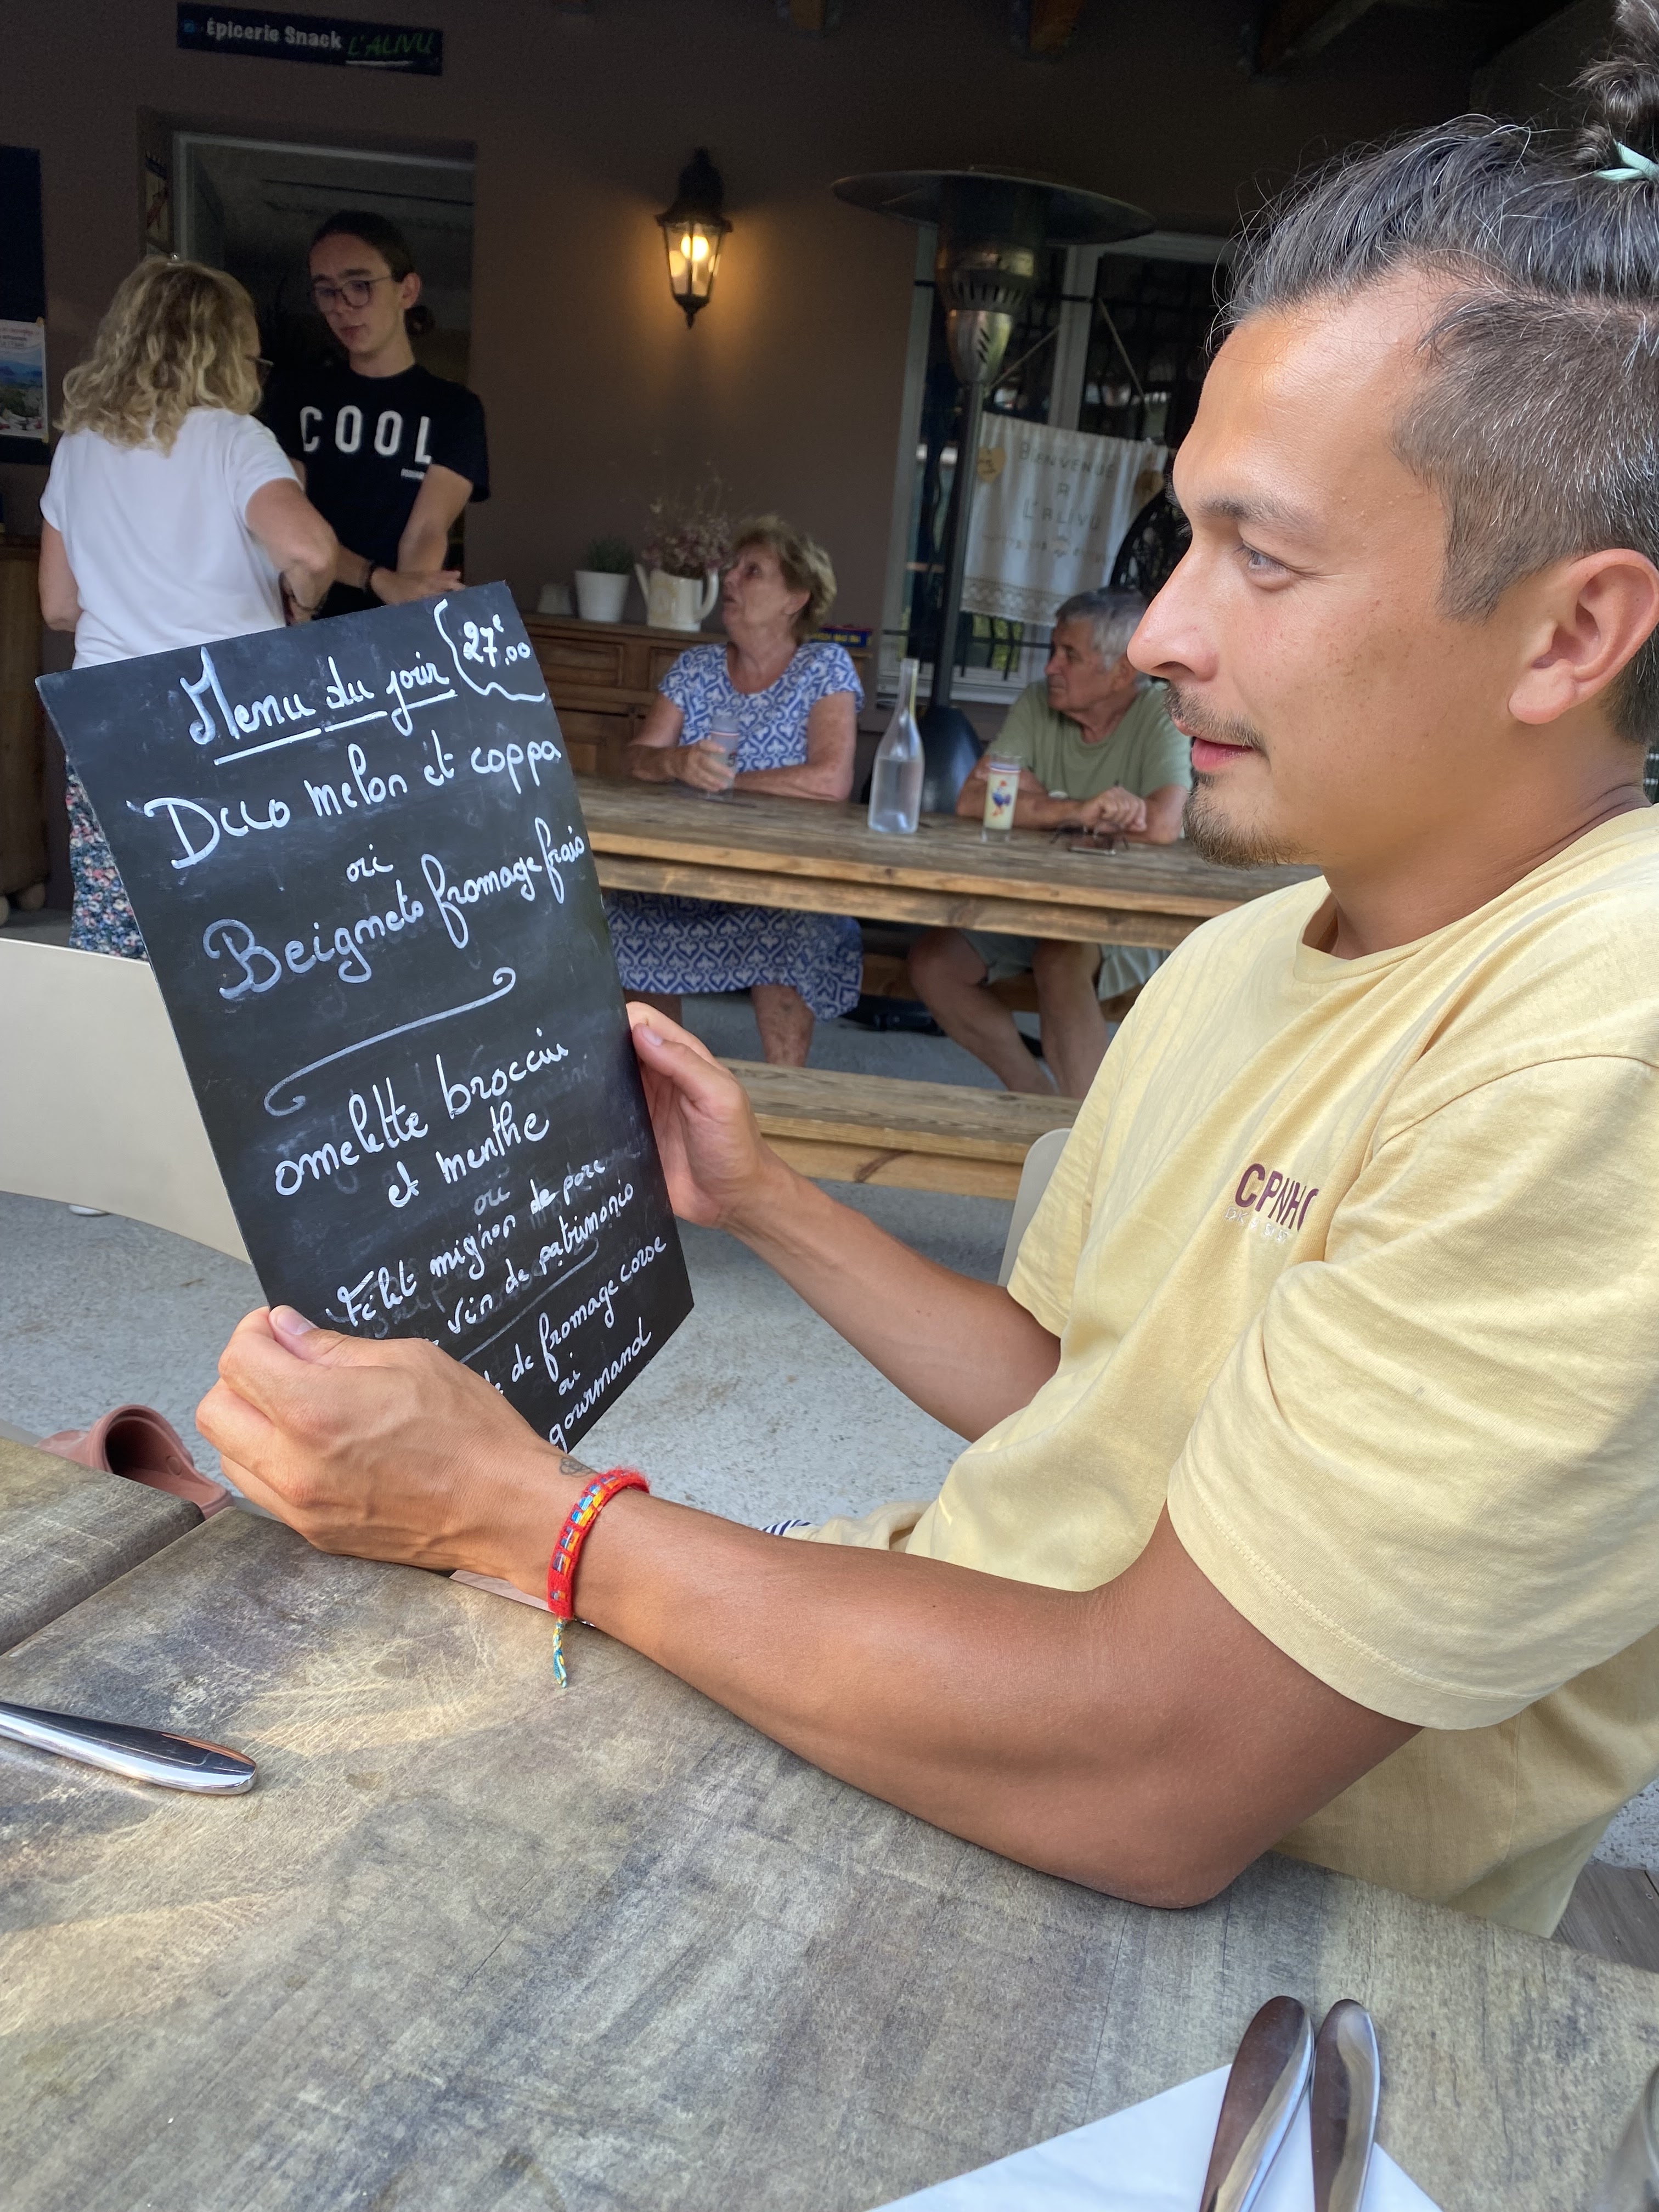 Épicerie Snack L'ALIVU
COOL
BIENVENUE
A
L'ALIVU
Menu du jour 27€.00
Duo melon et coppa
ou
Beignets fromage frais
omelette brocciu
et menthe
ou
Filet mignon de porc
vin de patrimonio
de fromage corse
ou
gourmand
CPNH